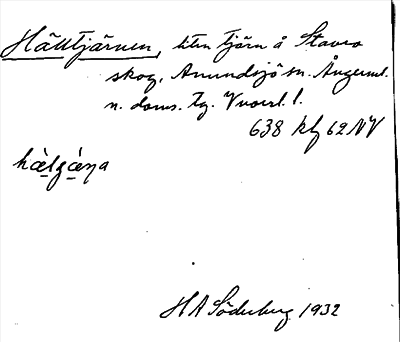 Hälltjärnen, liten tjärn å Stavro
skog, Anundsjö sn. Ångerml.
n. doms. tg.
638 kbf 62 NV
hä̀lʒä́ṇa
H A Söderberg 1932